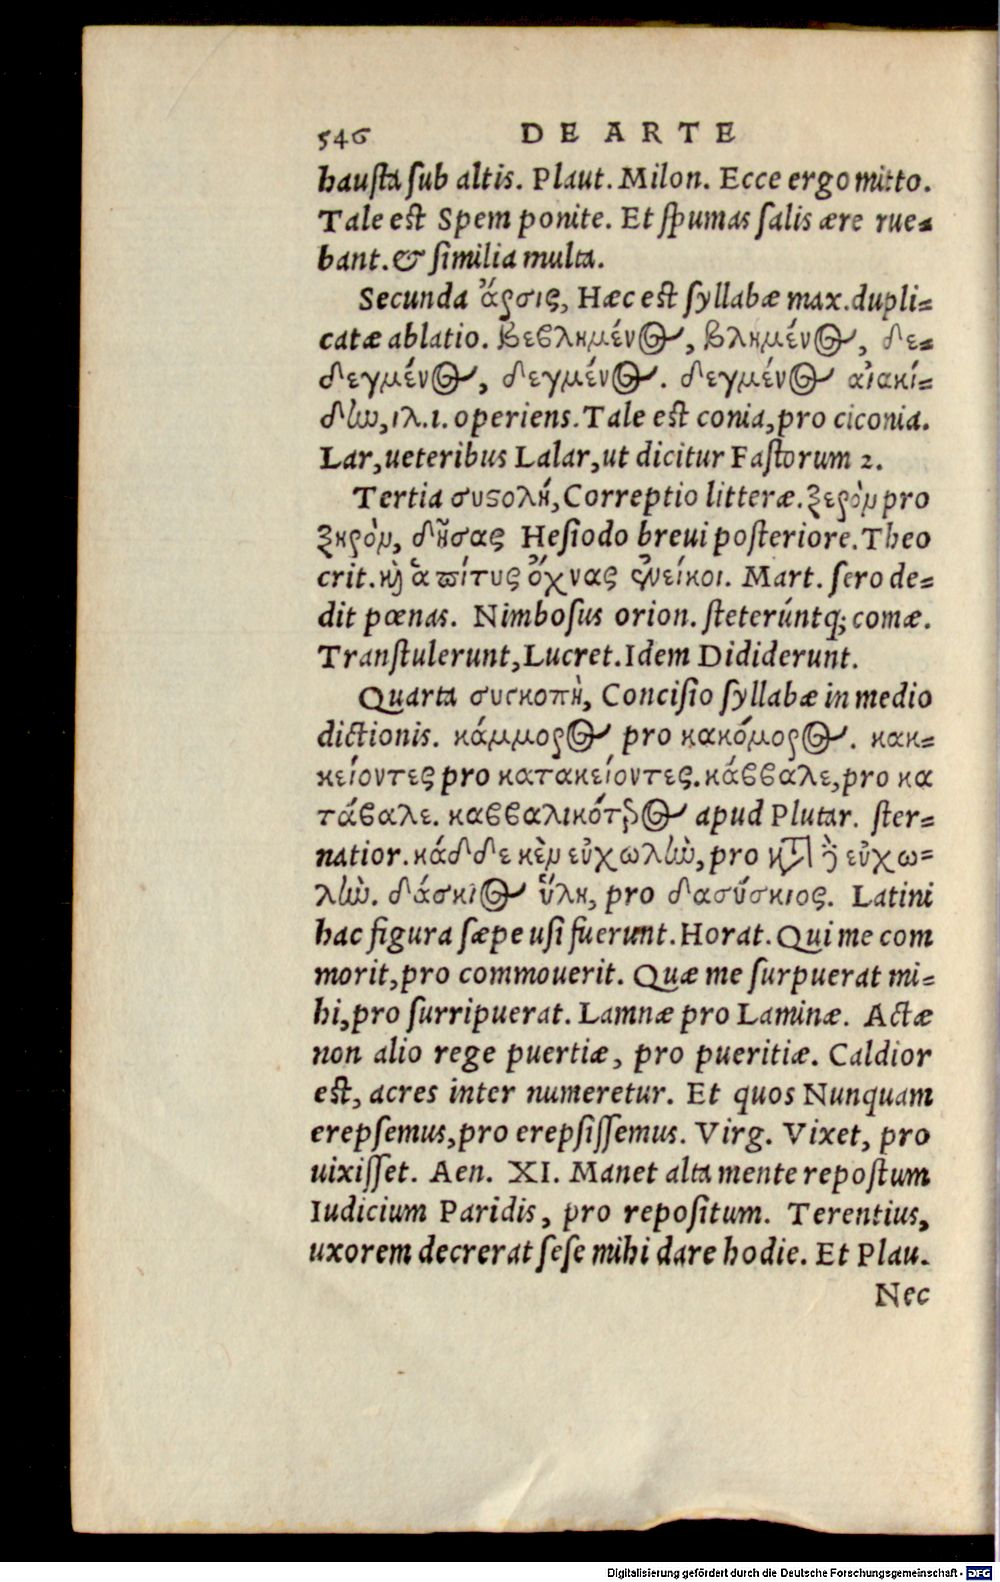 546 DE ARTE
hausta sub altis. Plaut. Milon. Ecce ergo mitto.
Tale est Spem ponite. Et spumas salis ære rue-
bant. & similia multa.
Secunda ἄρσις, Hæc est syllabæ max. dupli-
catæ ablatio. βεβλημένος, βλημένος, δε-
δεγμένος, δεγμένος. δεγμένος αἰακί-
δην, ιλ. 1. operiens. Tale est conia, pro ciconia.
Lar, ueteribus Lalar, ut dicitur Fastorum 2.
Tertia συστολή, Correptio litteræ. ξερὸν pro
ξηρὸν, δῆσας Hesiodo breui posteriore. Theo
crit. καὶ ἁ πίτυς ὄχνας ἐνείκοι. Mart. sero de-
dit pœnas. Nimbosus orion. steterúntq; comæ.
Transtulerunt, Lucret. Idem Dididerunt.
Quarta συγκοπὴ, Concisio syllabæ in medio
dictionis. κάμμορος pro κακόμορος. κακ-
κείοντες pro κατακείοντες. κάββαλε, pro κα
τάβαλε. καββαλικότερος apud Plutar. ster-
natior. κάδδε κὲν εὐχωλὴν, pro κατὰ δὲ εὐχω-
λὴν. δάσκιος ὕλη, pro δασύσκιος. Latini
hac figura sæpe usi fuerunt. Horat. Qui me com
morit, pro commouerit. Quæ me surpuerat mi-
hi, pro surripuerat. Lamnæ pro Laminæ. Actæ
non alio rege puertiæ, pro pueritiæ. Caldior
est, acres inter numeretur. Et quos Nunquam
erepsemus, pro erepsissemus. Virg. Vixet, pro
uixisset. Aen. XI. Manet alta mente repostum
Iudicium Paridis, pro repositum. Terentius,
uxorem decrerat sese mihi dare hodie. Et Plau.
Nec
Digitalisierung gefördert durch die Deutsche Forschungsgemeinschaft - DFG